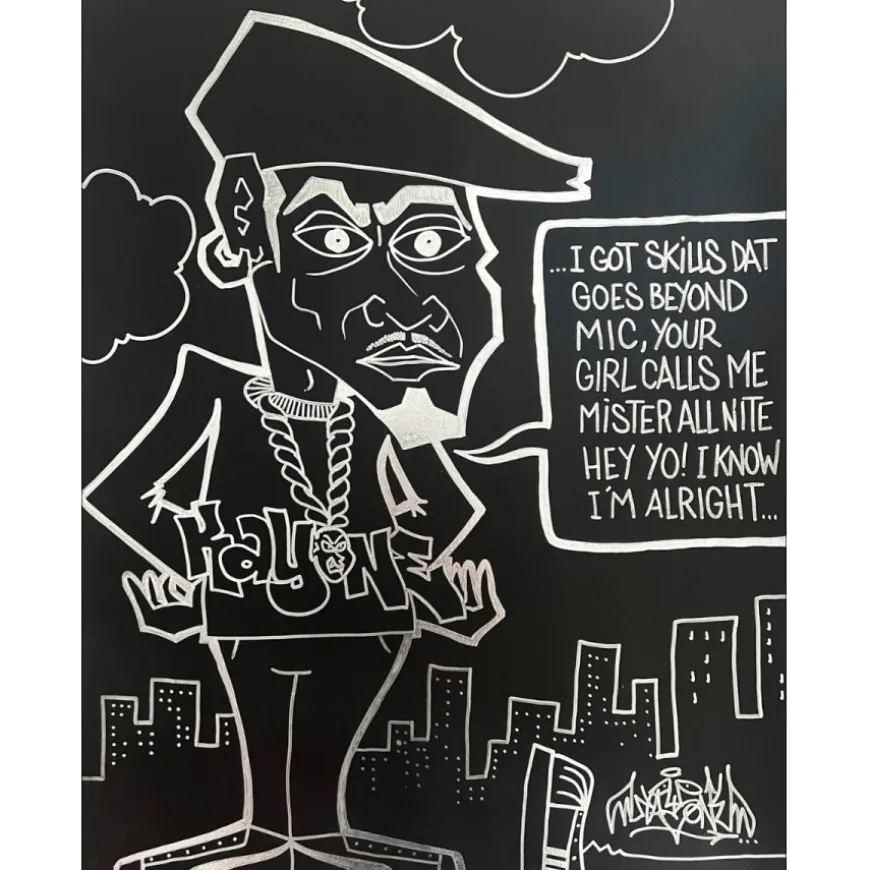 ...I GOT SKiLLS DAT
GOES BEYOND
MIC, YOUR
GIRL CALLS ME
MiSTER ALL NITE
HEY YO! I KNOW
I'M ALRIGHT...
KayONE